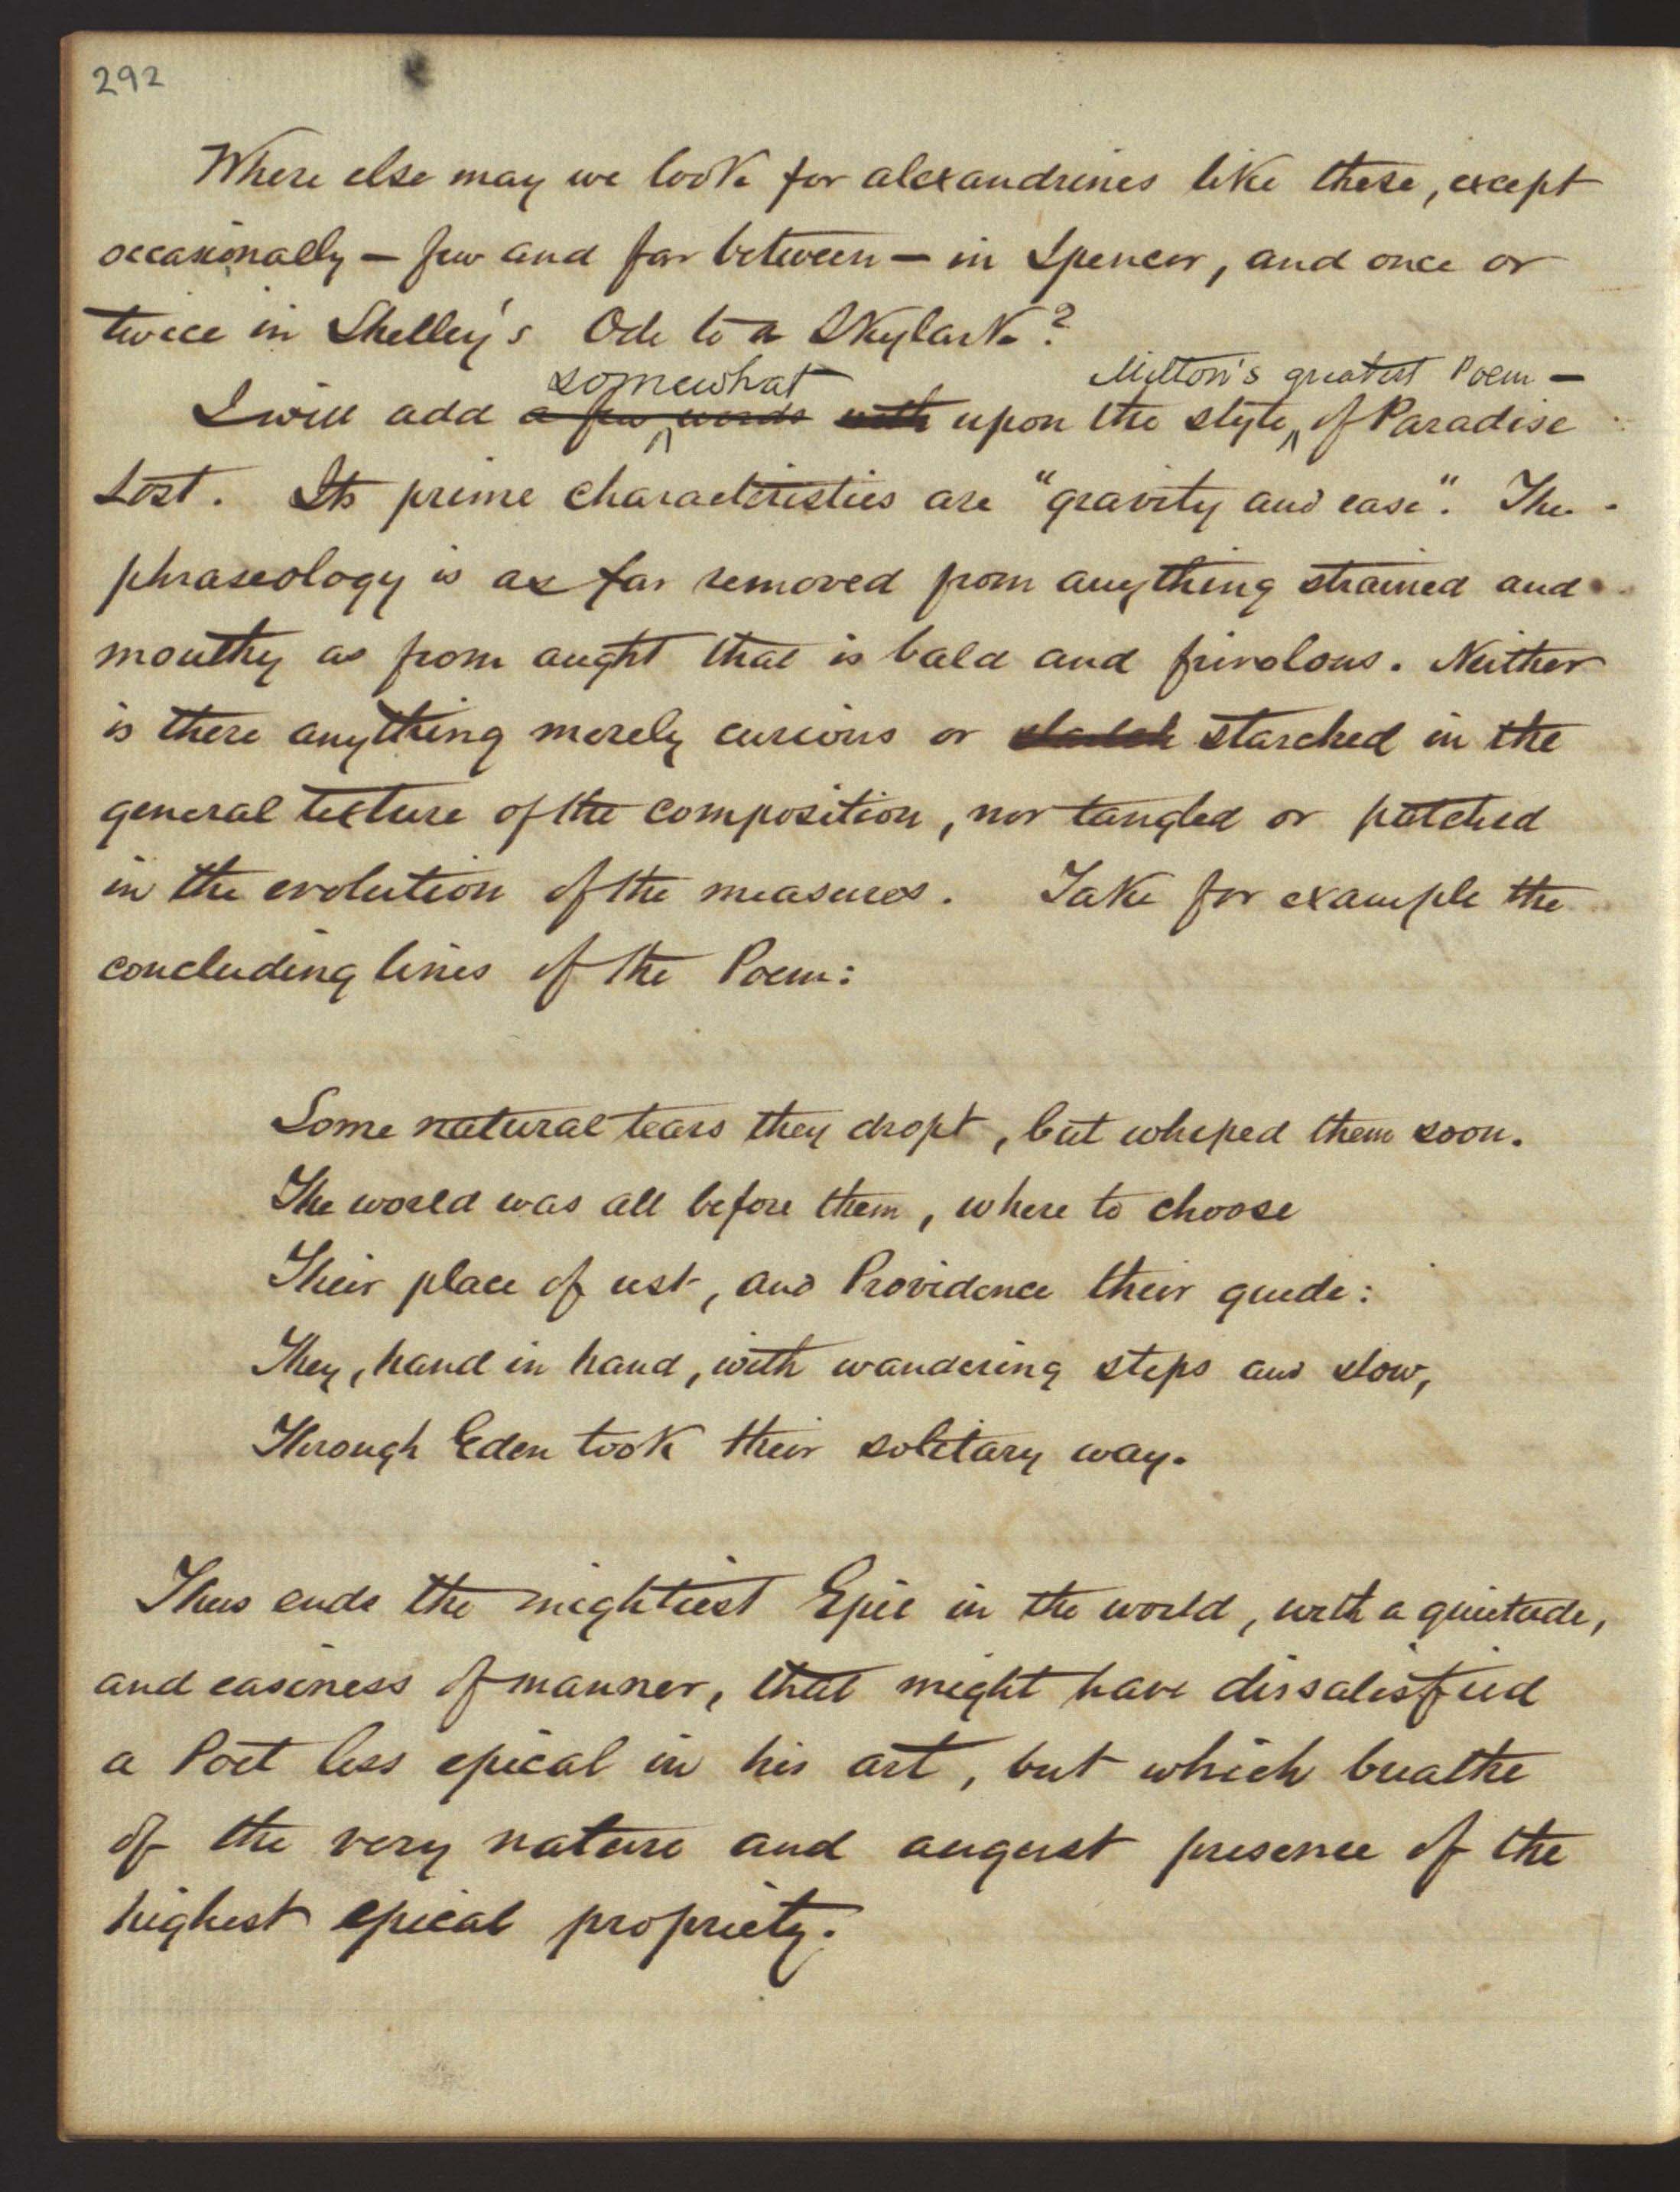 292
Where else may we look for alexandrines like these, except
occasionally — few and far between — in Spencer, and once or
twice in Shelley's Ode to a Skylark?
somewhat Milton's greatest Poem —
I will add a few words with upon the style of Paradise
Lost. Its prime characteristics are "gravity and ease". The
phraseology is as far removed from anything strained and
mouthy as from aught that is bald and frivolous. Neither
is there anything merely curious or starched in the
general texture of the composition, nor tangled or patched
in the evolution of the measures. Take for example the
concluding lines of the Poem:
Some natural tears they dropt, but whiped them soon.
The world was all before them, where to choose
Their place of rest, and Providence their guide:
They, hand in hand, with wandering steps and slow,
Through Eden took their solitary way.
Thus ends the mightiest Epic in the world, with a quietude,
and easiness of manner, that might have dissatisfied
a Poet less epical in his art, but which breathe
of the very nature and august presence of the
highest epical propriety.